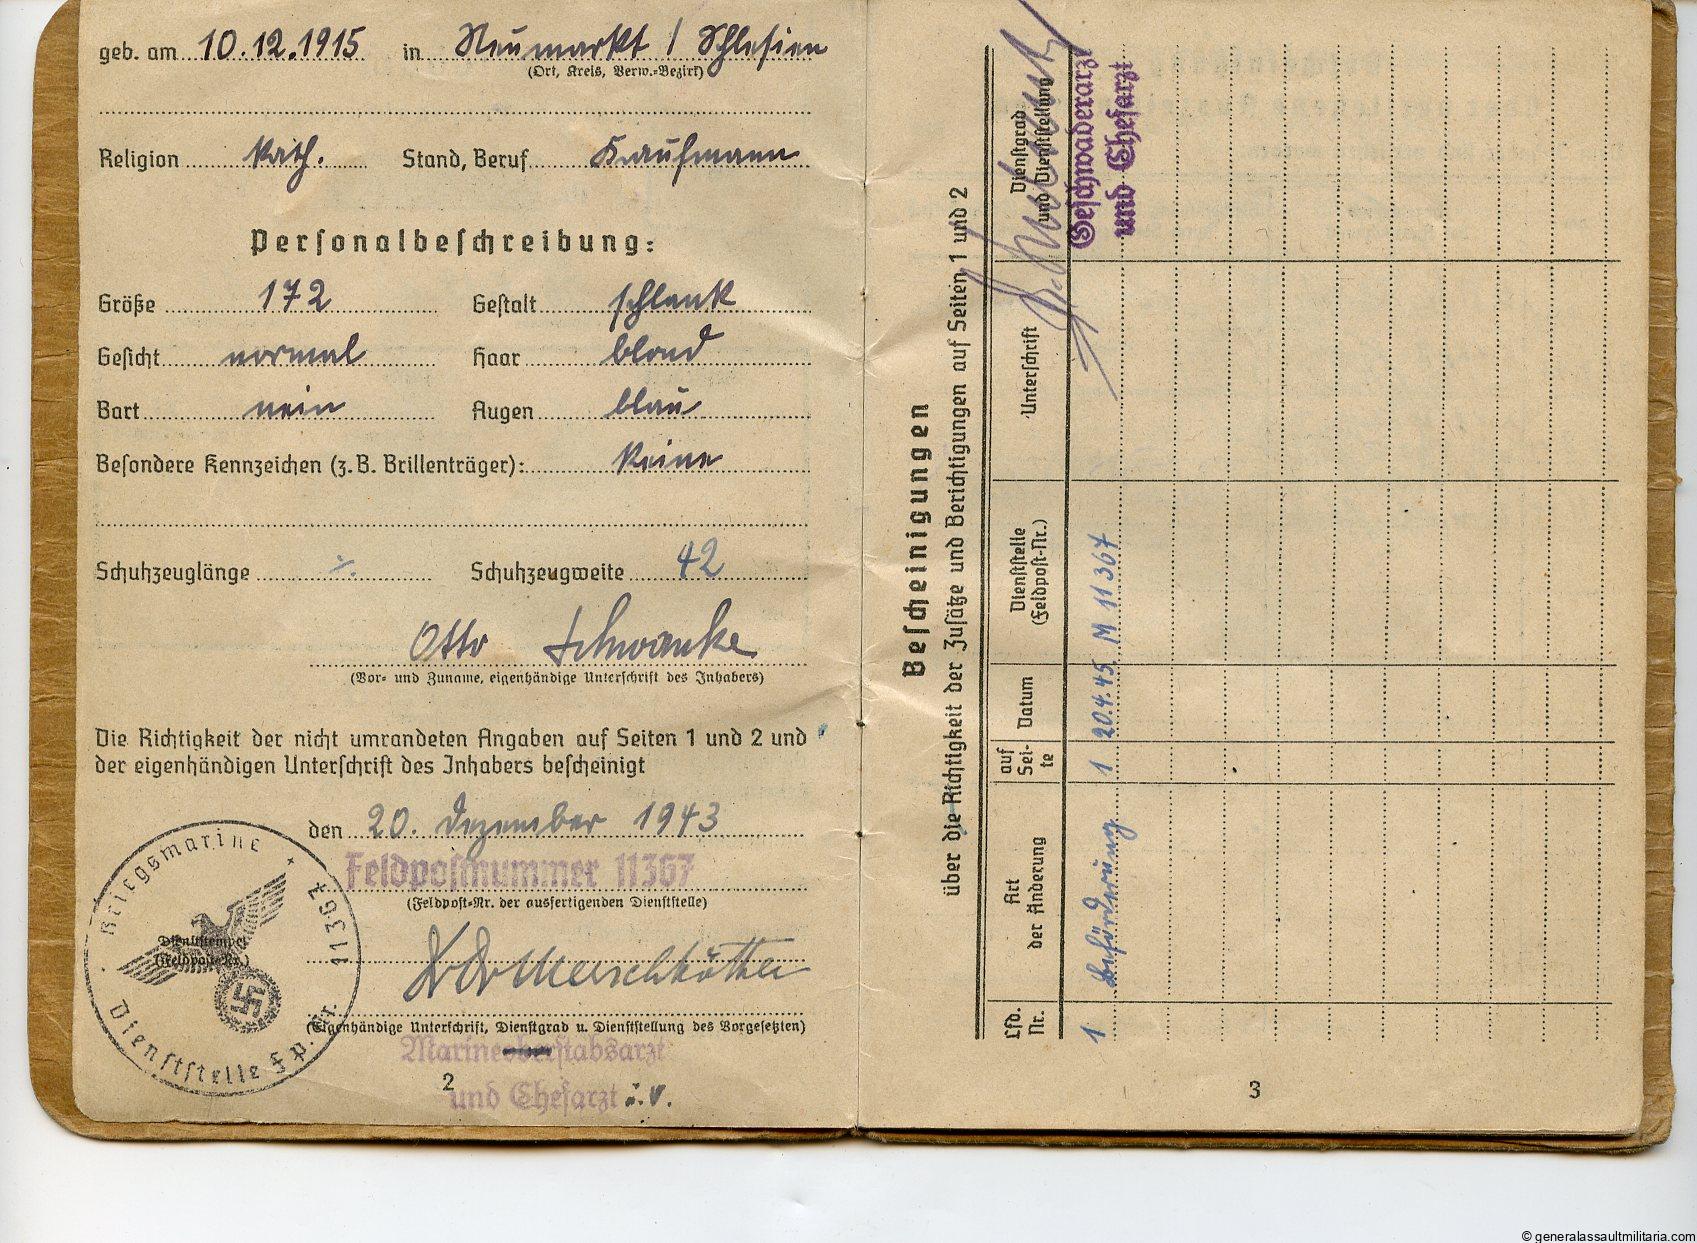 geb. am 10.12.1915 in Neumarkt / Schlesien
(Ort, Kreis, Verw.-Bezirk)
Religion kath. Stand, Beruf Kaufmann
Personalbeschreibung:
Größe 172 Gestalt schlank
Gesicht normal Haar blond
Bart nein Augen blau
Besondere Kennzeichen (z.B. Brillenträger): keine
Schuhzeuglänge ·/. Schuhzeugweite 42
Otto Schwanke
(Vor- und Zuname, eigenhändige Unterschrift des Inhabers)
Die Richtigkeit der nicht umrandeten Angaben auf Seiten 1 und 2 und
der eigenhändigen Unterschrift des Inhabers bescheinigt
den 20. Dezember 1943
Feldpostnummer 11367
(Feldpost-Nr. der ausfertigenden Dienststelle)
Kriegsmarine
Dienststelle F.p. Nr. 11367
Dienststempel
(Feldpost-Nr.)
(Eigenhändige Unterschrift, Dienstgrad u. Dienststellung des Vorgesetzten)
Marineoberstabsarzt
und Chefarzt i.V.
2
Bescheinigungen
über die Richtigkeit der Zusätze und Berichtigungen auf Seiten 1 und 2
Lfd. Nr. Art der Änderung auf Seite Datum Dienststelle (Feldpost-Nr.) Unterschrift Dienstgrad und Dienststellung
1 Beförderung 1 20.4.45 M 11367
Geschwaderarzt
und Chefarzt
3
© generalassaultmilitaria.com